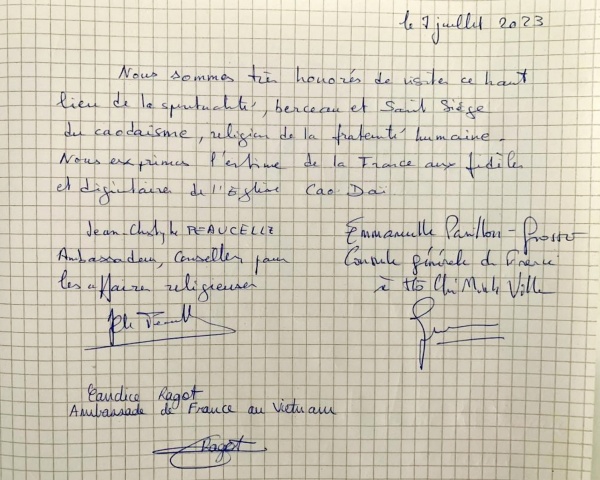 le 7 juillet 2023
Nous sommes très honorés de visiter ce haut
lieu de la spiritualité, berceau et Saint Siège
du caodaïsme, religion de la fraternité humaine.
Nous exprimons l'estime de la France aux fidèles
et dignitaires de l'Eglise Cao Dai
Jean-Christophe PEAUCELLE
Ambassadeur, Conseiller pour
les affaires religieuses
Emmanuelle Pavillon-Grosser
Consule générale de France
à Hô Chi Minh Ville
Candice Ragot
Ambassade de France au Vietnam
Ragot